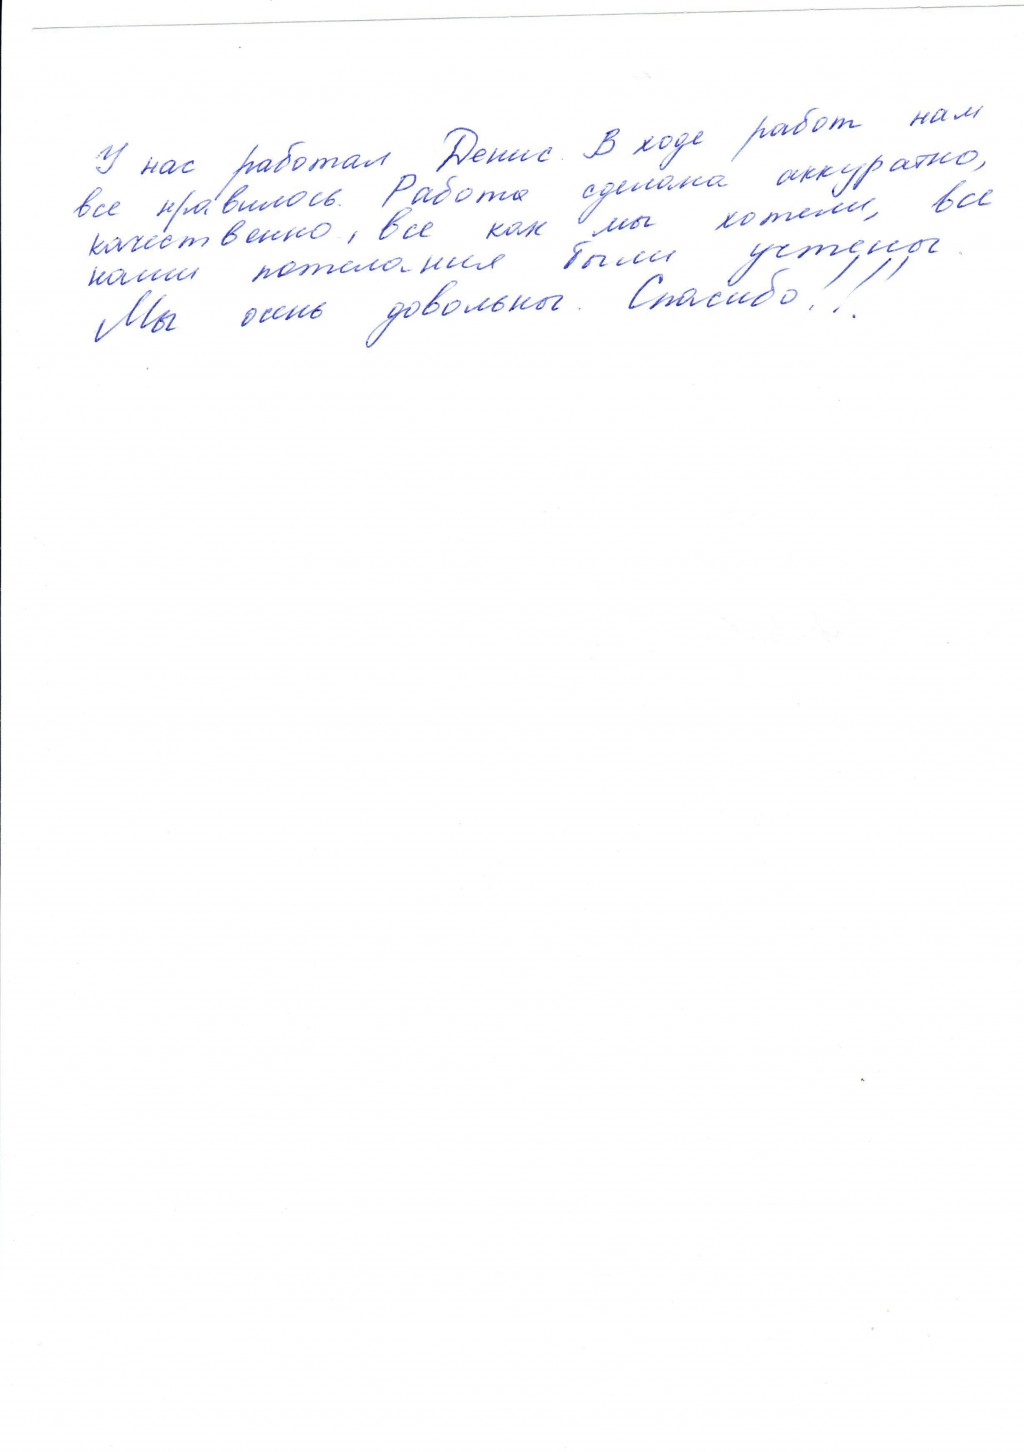 У нас работал Денис. В ходе работ нам
все нравилось. Работа сделана аккуратно,
качественно, все как мы хотели, все
наши пожелания были учтены.
Мы очень довольны. Спасибо!!!